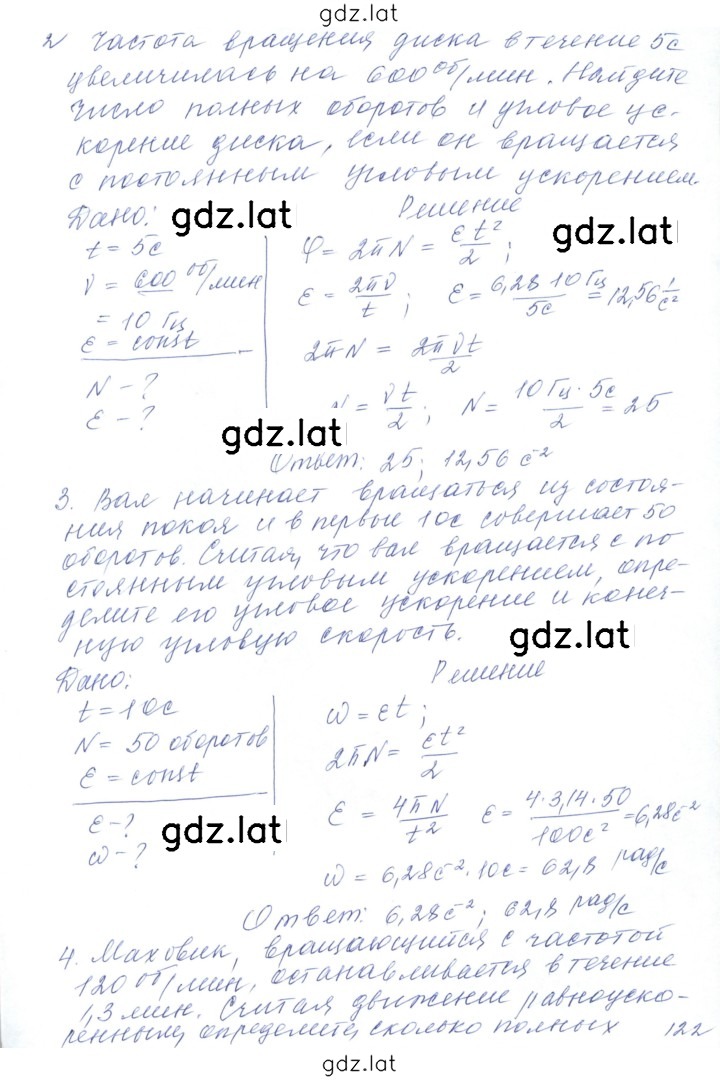 gdz.lat
2 Частота вращения диска в течение 5с
увеличилась на 600 об/мин. Найдите
число полных оборотов и угловое ус-
корение диска, если он вращается
с постоянным угловым ускорением.
Дано: gdz.lat Решение gdz.lat
t = 5с
ν = 600 об/мин
= 10 Гц
ε = const
N - ?
ε - ?
φ = 2πN = εt²/2;
ε = 2πν/t; ε = 6,28·10 Гц/5с = 12,56 1/с²
2πN = 2πνt/2
N = νt/2; N = 10Гц·5с/2 = 25
gdz.lat
Ответ: 25; 12,56 с⁻²
3. Вал начинает вращаться из состоя-
ния покоя и в первые 10с совершает 50
оборотов. Считая, что вал вращается с по
стоянным угловым ускорением, опре-
делите его угловое ускорение и конеч-
ную угловую скорость. gdz.lat
Дано: Решение
t = 10с
N = 50 оборотов
ε = const
ε - ?
ω - ?
gdz.lat
ω = εt;
2πN = εt²/2
ε = 4πN/t² ε = 4·3,14·50/100с² = 6,28с⁻²
ω = 6,28с⁻²·10с = 62,8 рад/с
Ответ: 6,28с⁻²; 62,8 рад/с
4. Маховик, вращающийся с частотой
120 об/мин, останавливается в течение
1,3 мин. Считая движение равноуско-
ренным, определите, сколько полных 122
gdz.lat